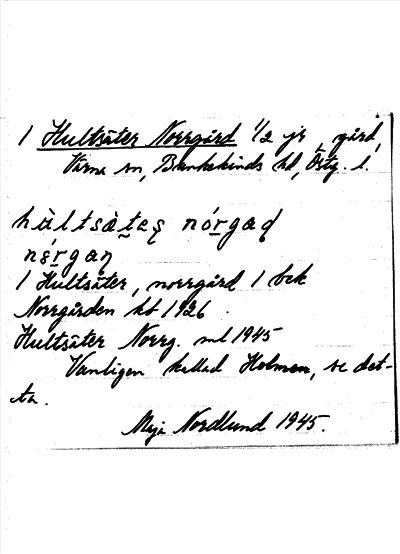 1 Hultsäter Norrgård 1/2 jr, gård,
Värna sn, Bankekinds hd, Östg. l.
hùltsàteş nórgaḍ
nórgaṇ
1 Hultsäter, norrgård 1 bek
Norrgården kb 1926
Hultsäter Norrg. ml 1945
Vanligen kallad Holmen, se det-
ta.
Maja Nordlund 1945.